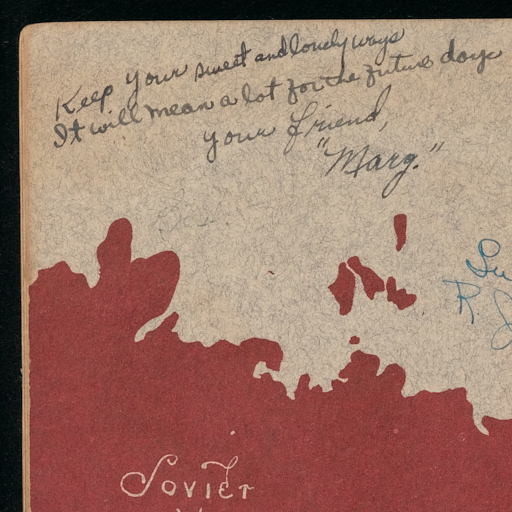 Keep your sweet and lovely ways
It will mean a lot for the future days
your friend,
"Marg."
Su
R. J
Soviet